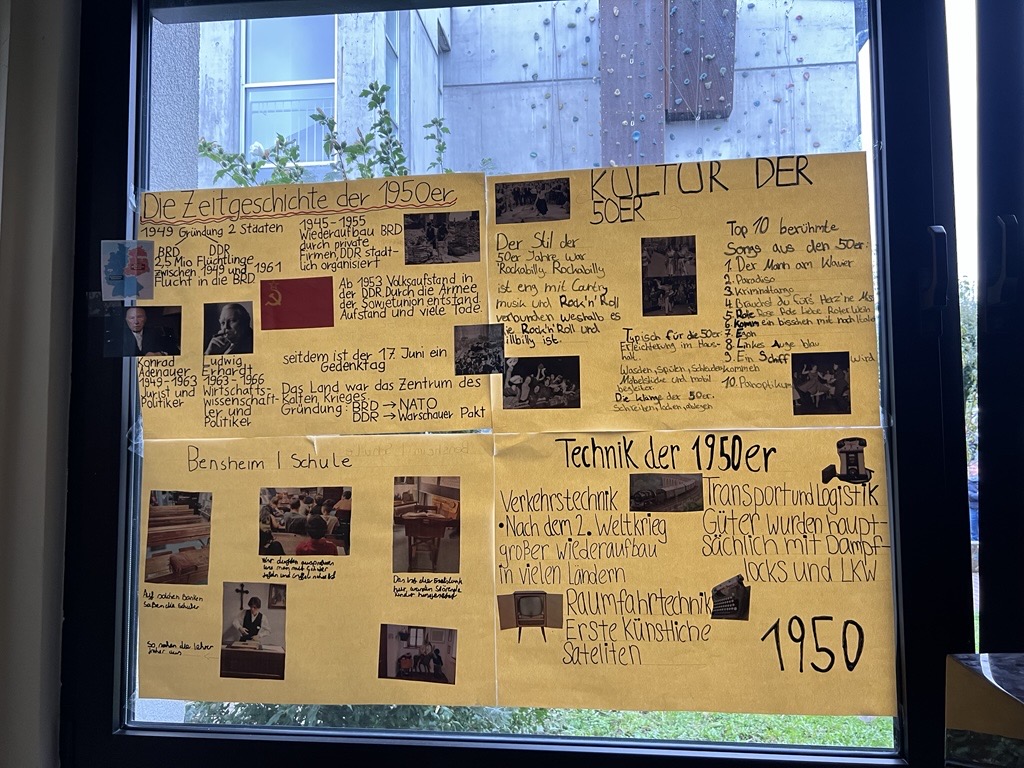 Die Zeitgeschichte der 1950er
1949 Gründung 2 Staaten
BRD DDR
2,5 Mio Flüchtlinge
zwischen 1949 und 1961
Flucht in die BRD
1945-1955
Wiederaufbau BRD
durch private
Firmen, DDR staat-
lich organisiert
Ab 1953 Volksaufstand in
der DDR. Durch die Armee
der Sowjetunion entstand
Aufstand und viele Tode.
seitdem ist der 17. Juni ein
Gedenktag
Konrad
Adenauer
1949-1963
Jurist und
Politiker
Ludwig
Erhardt
1963-1966
Wirtschafts-
wissenschaft-
ler und
Politiker
Das Land war das Zentrum des
Kalten Krieges
Gründung: BRD → NATO
DDR → Warschauer Pakt
KULTUR DER
50ER
Der Stil der
50er Jahre war
Rockabilly. Rockabilly
ist eng mit Cantry
musik und Rock'n'Roll
verbunden weshalb es
Rock'n'Roll und
Hillbilly ist.
Typisch für die 50er:
Erleichterung im Haus-
halt.
Waschen, Spülen, Schleudern
Möbelstücke und mobil
begleiter.
Die Klamo der 50er.
Top 10 berühmte
Songs aus den 50er:
1. Der Mann am Klavier
2. Paradiso
3. Kriminaltango
4. Brauchst du fürs Herz'ne
5. Rote Rose Rote Liebe Roter Wein
6. Komm ein bisschen mit nach Italien
7. Egon
8. Linkes Auge blau
9. Ein Schiff wird
kommen
10. Panoptikum
Bensheim | Schule
Auf solchen Bänken
saßen die Schüler
Wir durften ausprobieren
wie man mit
Das ist die Eselsbank
hier wurden Störende
Kinder hingesetzt
So sahen die Lehrer
früher aus
Technik der 1950er
Verkehrstechnik
•Nach dem 2. Weltkrieg
großer wiederaufbau
in vielen Ländern
Transport und Logistik
Güter wurden haupt-
sächlich mit Dampf-
locks und LKW
Raumfahrtechnik
Erste Künstliche
Sateliten
1950